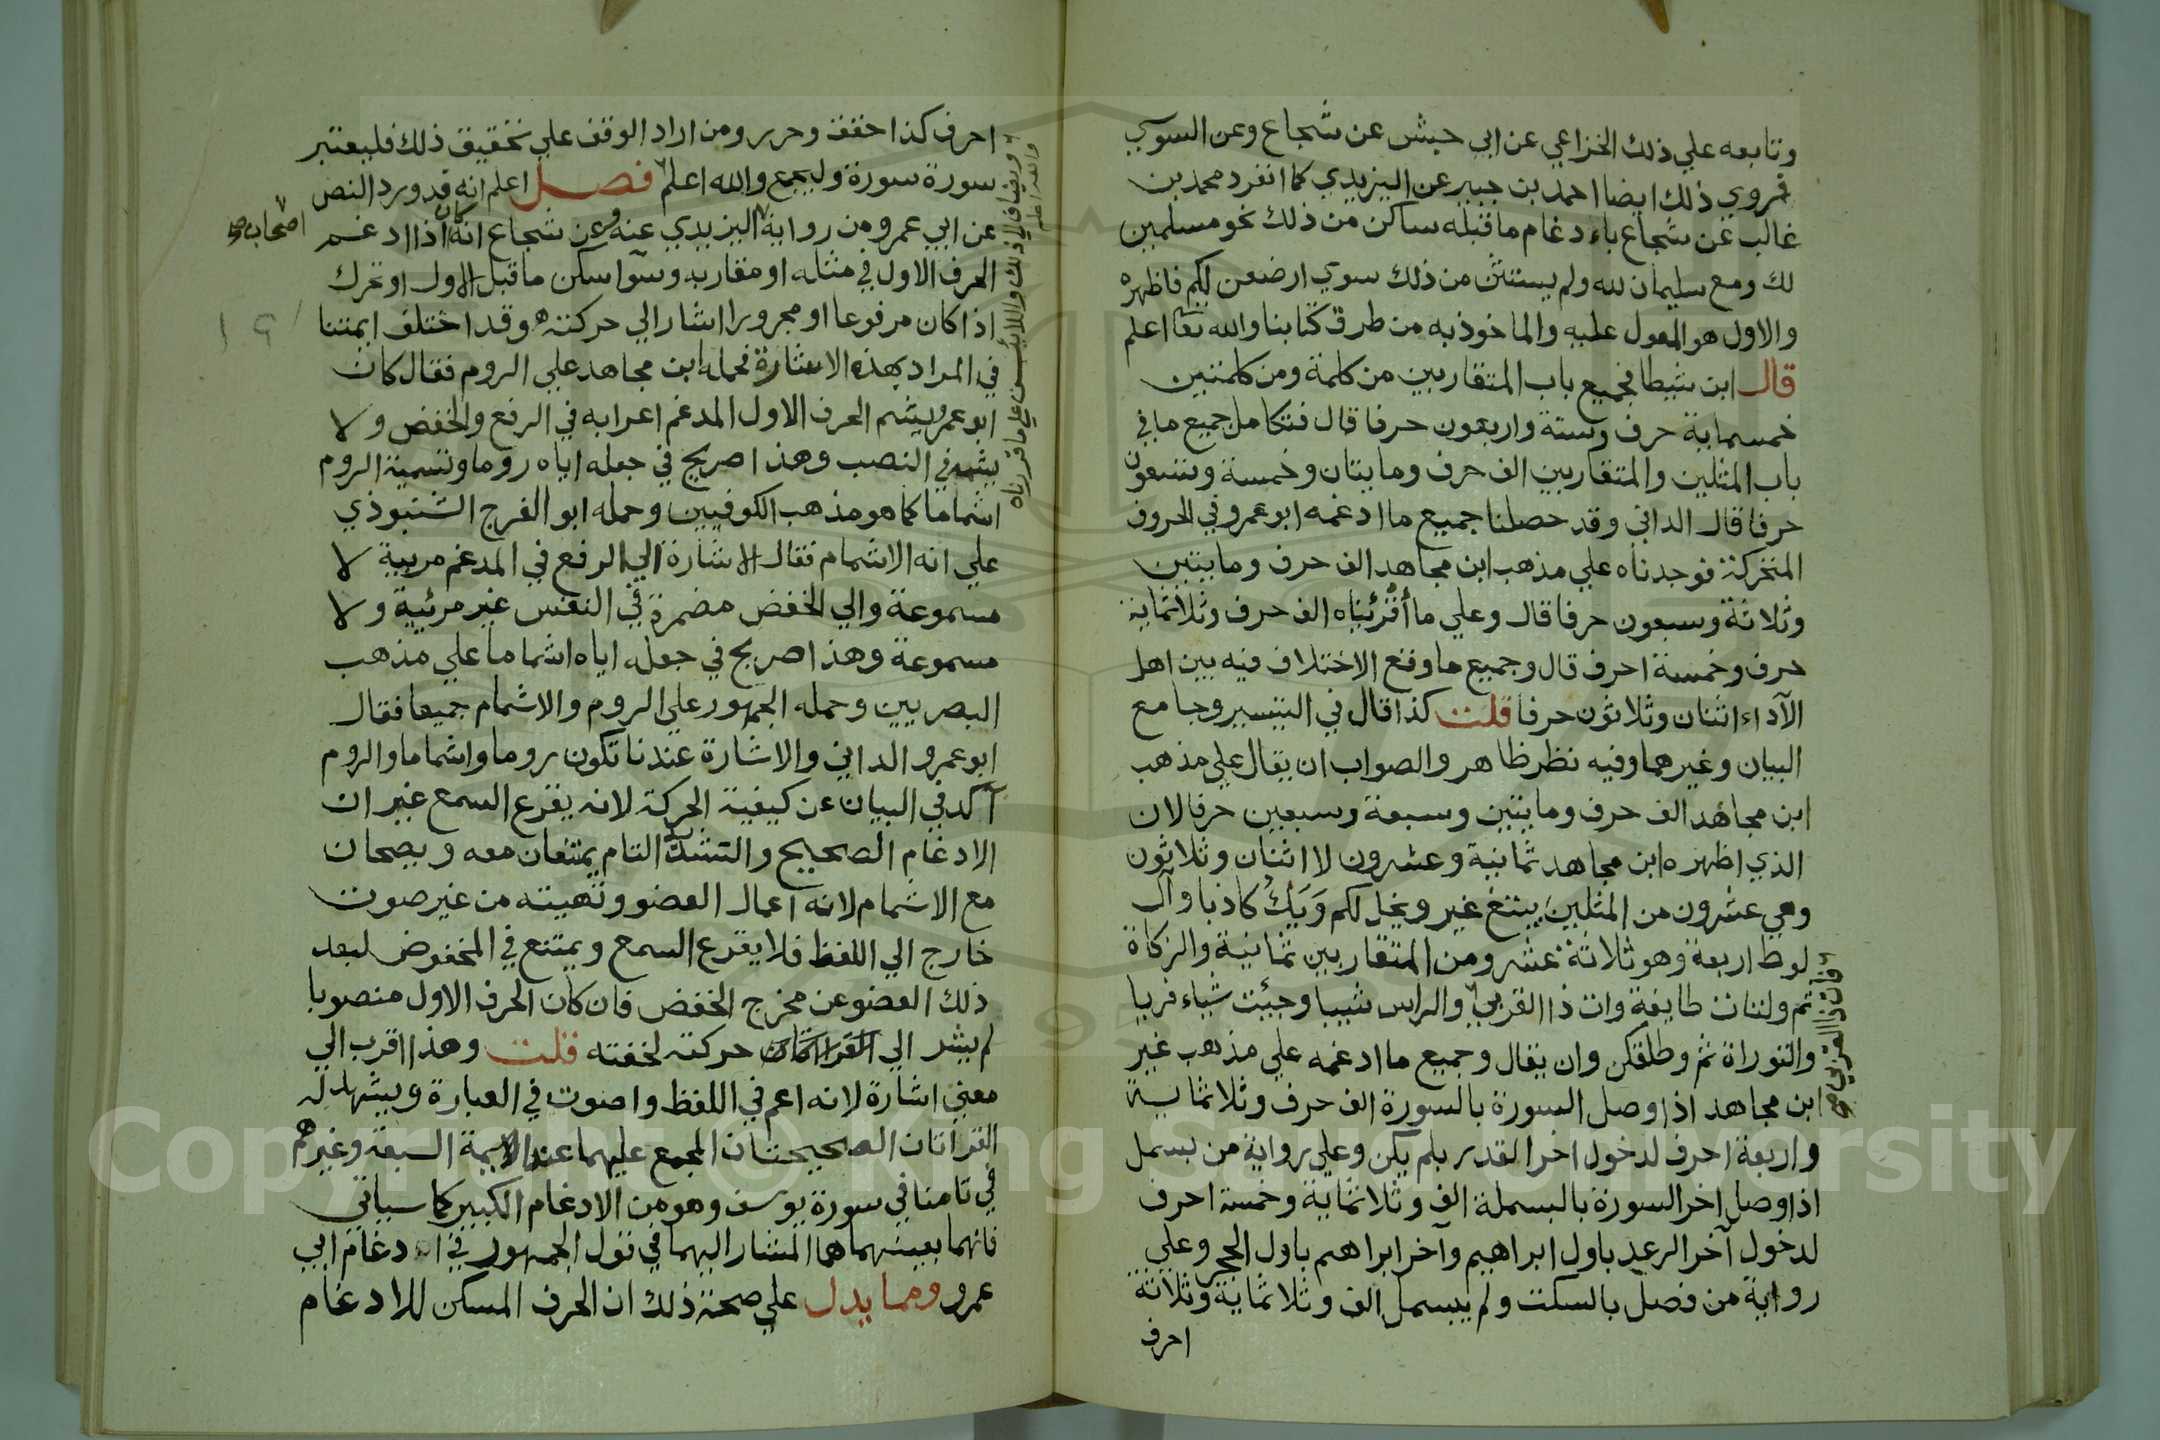 وتابعه علي ذلك الخزاعي عن ابي حبش عن شجاع وعن السوسي
فروي ذلك ايضا احمد بن جبير عن اليزيدي كما انفرد محمد بن
غالب عن شجاع باد دغام ما قبله ساكن من ذلك نحو مسلمين
لك ومع سليمان لله ولم يستثن من ذلك سوي ارضعن لكم فاظهره
والاول هو المعول عليه والماخوذ به من طرق كتابنا والله تعا اعلم
قال ابن شيطا فجميع باب المتقاربين من كلمة ومن كلمتين
خمسماية حرف وستة واربعون حرفا قال فتكامل جميع ما في
باب المثلين والمتقاربين الف حرف ومايتان وخمسة وتسعون
حرفا قال الداني وقد حصلنا جميع ما ادغمه ابو عمرو في الحروف
المتحركة فوجدناه علي مذهب ابن مجاهد الف حرف ومايتين
وثلاثة وسبعون حرفا قال وعلي ما أُقرئناه الف حرف وثلاثماية
حرف وخمسة احرف قال وجميع ما وقع الاختلاف فيه بين اهل
الآداء اثنان وثلاثون حرفا قلت كذا قال في التيسير وجامع
البيان وغيرهما وفيه نظر ظاهر والصواب ان يقال علي مذهب
ابن مجاهد الف حرف ومايتين وسبعة وسبعين حرفا لان
الذي اظهره ابن مجاهد ثمانية وعشرون لا اثنان وثلاثون
وهي عشرون من المثلين يبتغ غير ويخل لكم وَيَكُ كاذبا وآل
لوط اربعة وهو ثلاثة عشر ومن المتقاربين ثمانية والزكاة
ثم ولتات طايفة وات ذا القربي والراس شيبا وجئت شياء فريا
والتوراة ثم وطلقكن وان يقال وجميع ما ادغمه علي مذهب غير
ابن مجاهد اذا وصل السورة بالسورة الف حرف وثلاثماية
واربعة احرف لدخول اخر القدر بلم يكن وعلي رواية من بسمل
اذا وصل اخر السورة بالبسملة الف وثلاثماية وخمسة احرف
لدخول آخر الرعد باول ابراهيم وآخر ابراهيم باول الحجر وعلي
رواية من فصل بالسكت ولم يبسمل الف وثلاثماية وثلاثة
احرف
فآت ذا القربي صح
احرف كذا حقق وحرر ومن اراد الوقف علي تحقيق ذلك فليعتبر
سورة سورة وليجمع والله اعلم فصل اعلم انه قد ورد النص
عن ابي عمرو من رواية اليزيدي عنه وعن شجاع انه كان اذا ادغم
الحرف الاول في مثله او مقاربه وسوآ سكن ما قبل الاول او تحرك
اذا كان مرفوعا او مجرورا اشار الي حركته وقد اختلف ايمتنا
في المراد بهذه الاشارة فحمله ابن مجاهد علي الروم فقال كان
ابو عمرو يشم الحرف الاول المدغم اعرابه في الرفع والخفض ولا
يشم في النصب وهذا صريح في جعله اياه روما وتسمية الروم
اشماما كما هو مذهب الكوفيين وحمله ابو الفرج الشنبوذي
علي انه الاشمام فقال الاشارة الي الرفع في المدغم مريية لا
مسموعة والي الخفض مضمرة في النفس غير مرئية ولا
مسموعة وهذا صريح في جعله اياه اشماما علي مذهب
البصريين وحمله الجمهور علي الروم والاشمام جميعا فقال
ابو عمرو الداني والاشارة عندنا تكون روما واشماما والروم
آكد في البيان عن كيفية الحركة لانه يقرع السمع غير ان
الادغام الصحيح والتشديد التام يمتنعان معه ويصحان
مع الاشمام لانه اعمال العضو وتهيئته من غير صوت
خارج الي اللفظ فلا يقرع السمع ويمتنع في المخفوض لبعد
ذلك العضو عن مخرج الخفض فان كان الحرف الاول منصوبا
لم يشر الي حركته لخفته قلت وهذا اقرب الي
معني اشارة لانه اعم في اللفظ واصوت في العبارة ويشهد له
القراتان الصحيحتان المجمع عليهما عند الايمة السبعة وغيرهم
في تامنا في سورة يوسف وهو من الادغام الكبير كما سياتي
فانهما بعينهما هما المشار اليهما في قول الجمهور في ادغام ابي
عمرو ومما يدل علي صحة ذلك ان الحرف المسكن للادغام
اصحاب صح